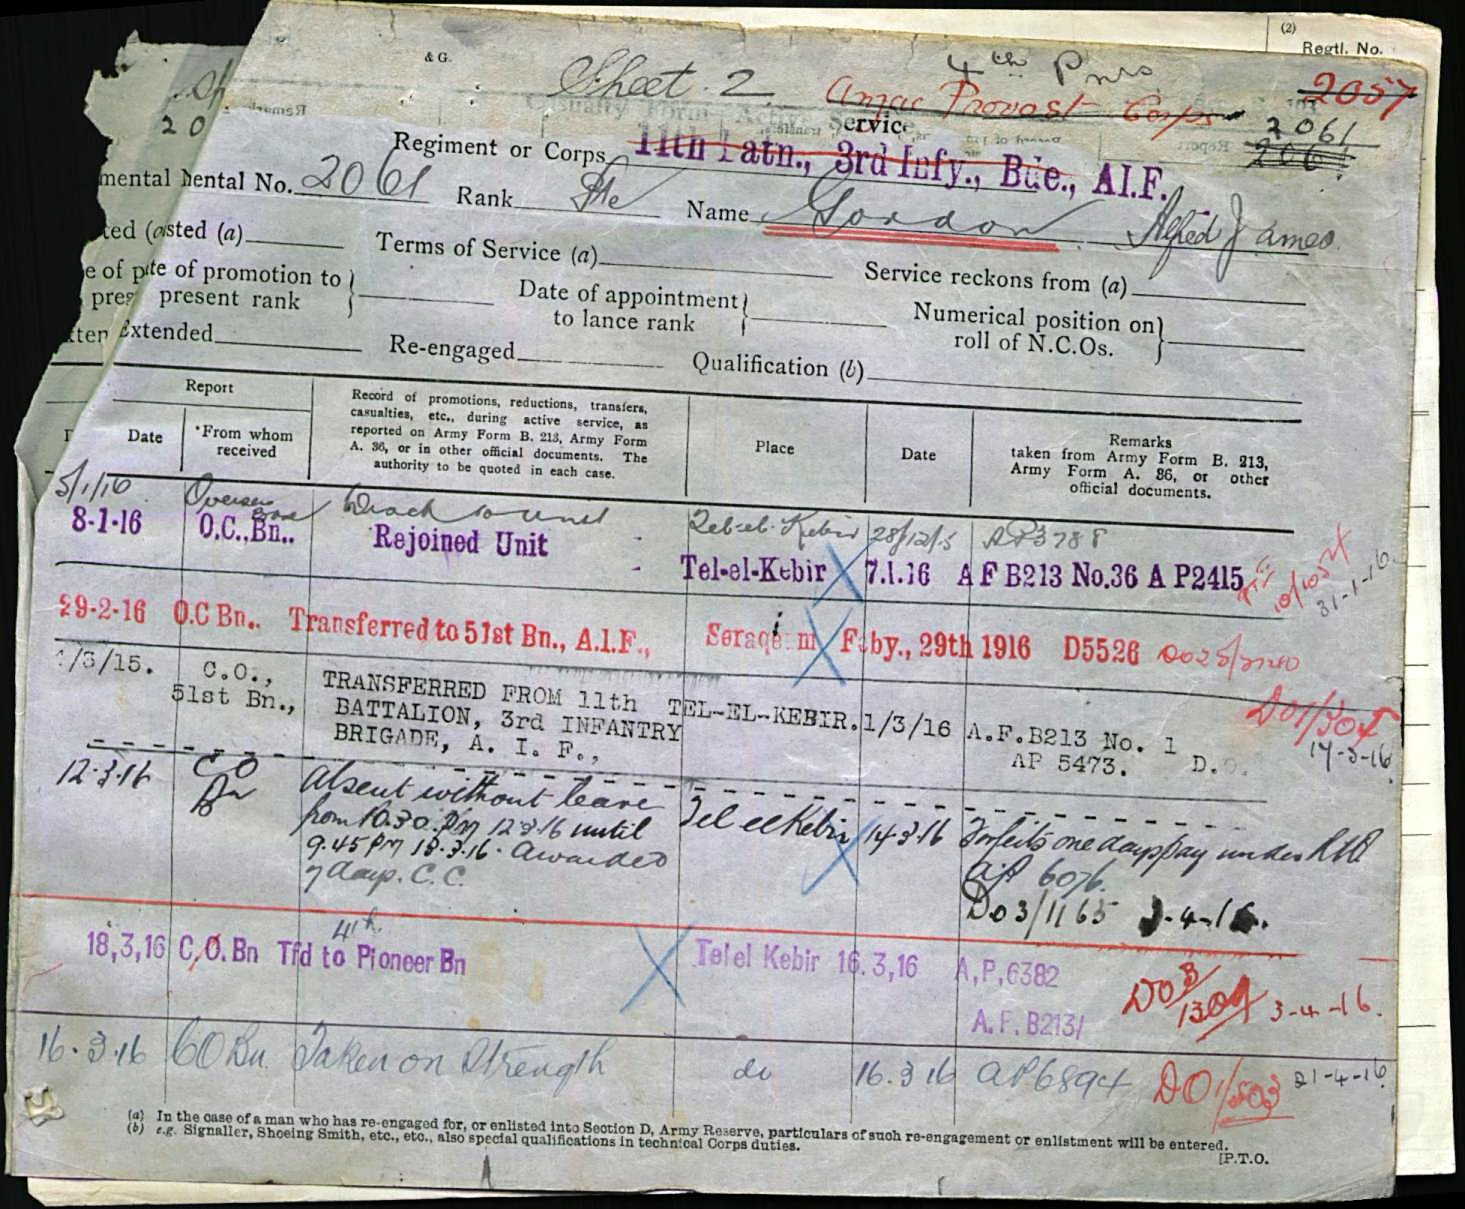 (2)
Regtl. No.
& G.
Sheet. 2
4th Pnrs
Anzac Provost Corps
2057
2061
206
Casualty Form Active Service
Regiment or Corps 11th Batn., 3rd Infy., Bde., A.I.F.
mental Dental No. 2061 Rank Pte Name Gordon Alfred James
ted (a sted (a) Terms of Service (a) Service reckons from (a)
e of p te of promotion to present rank Date of appointment to lance rank Numerical position on roll of N.C.Os.
Extended Re-engaged Qualification (b)
Report
Date
*From whom received
Record of promotions, reductions, transfers,
casualties, etc., during active service, as
reported on Army Form B. 213, Army Form
A. 36, or in other official documents. The
authority to be quoted in each case.
Place
Date
Remarks
taken from Army Form B. 213,
Army Form A. 36, or other
official documents.
5/1/16 Overseas Base to unit Tel-el-Kebir 28/12/15 AP3788
8-1-16 O.C.,Bn.. Rejoined Unit Tel-el-Kebir 7.1.16 A F B213 No.36 A P2415
31-1-16
29-2-16 O.C Bn.. Transferred to 51st Bn., A.I.F., Serapeum Feby., 29th 1916 D5526
/3/15. C.O., 51st Bn., TRANSFERRED FROM 11th TEL-EL-KEBIR. 1/3/16 A.F.B213 No. 1
BATTALION, 3rd INFANTRY
BRIGADE, A. I. F., AP 5473. D.O.
DO1/304
17-3-16
12.3.16 CO Bn Absent without leave Tel el Kebir 14.3.16 Forfeits one days pay under RW
from 10.30.PM 12.3.16 until AP 6076.
9.45 PM 13.3.16. Awarded Do3/1165 3-4-16.
7 days. C.C.
4th
18,3,16 C,O. Bn Tfd to Pioneer Bn Tel el Kebir 16.3,16 A,P,6382
A.F.B213/
DO3/1309 3-4-16.
16.3.16 CO Bn. Taken on Strength do 16.3.16 AP6894 DO1/503 21-4-16
(a) In the case of a man who has re-engaged for, or enlisted into Section D, Army Reserve, particulars of such re-engagement or enlistment will be entered.
(b) e.g. Signaller, Shoeing Smith, etc., etc., also special qualifications in technical Corps duties.
[P.T.O.